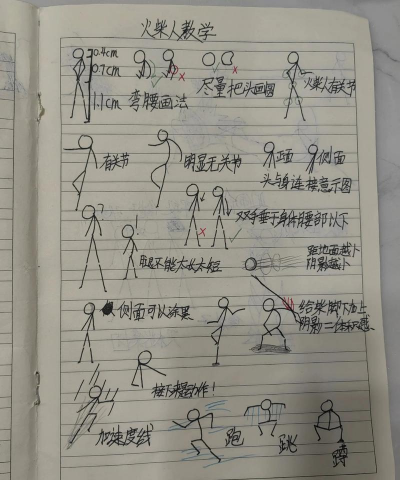 火柴人教学
0.4cm
0.7cm
1.1cm
弯腰画法
尽量把头画圆
火柴人有关节
有关节
明显无关节
正面
侧面
头与身连接意示图
双手垂于身体腰部以下
腿不能太长太短
距地面越小
阴影越小
侧面可以涂黑
给柴脚下加上
阴影
接下来是动作!
加速度线
跑
跳
蹲